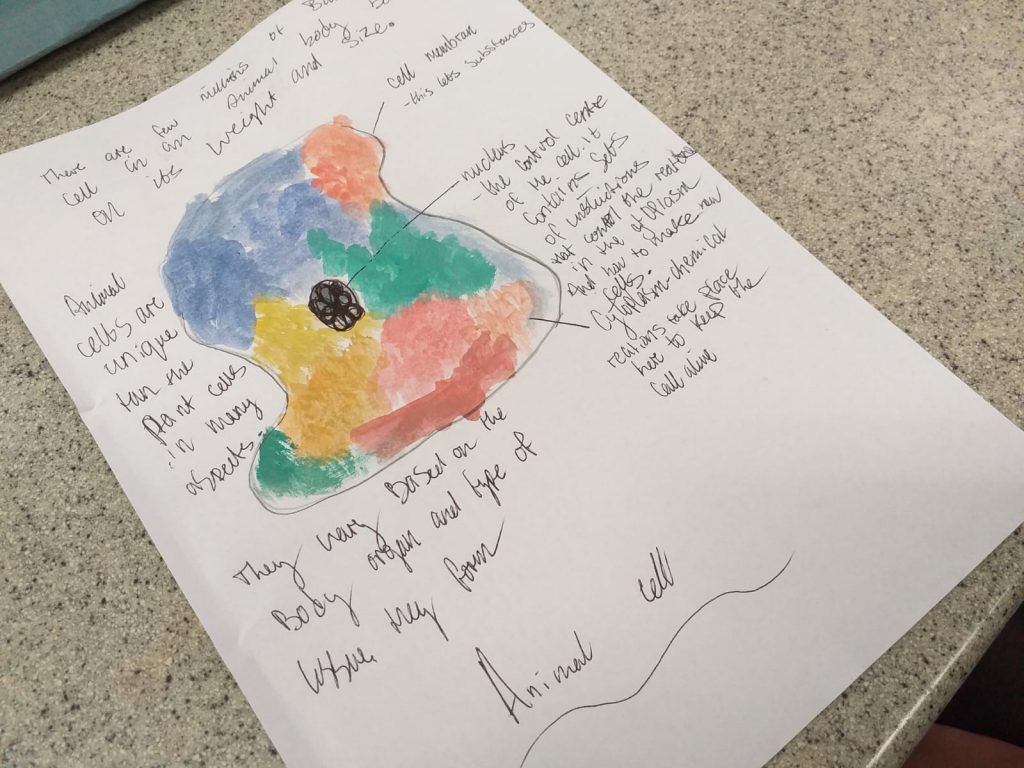 There are few millions of
cell in an Animal body
on its weight and size.
cell membran
- this lets substances
nucleus
- the control centre
of the cell. It
contains sets
of instructions
that control the
in the cytoplasm
And how to make new
cells.
Cytoplasm - chemical
reations take place
her to keep the
Call alive
Animal
cells are
unique
tan the
plant cells
in many
They vary Based on the
Body organ and type of
they form
Animal cell